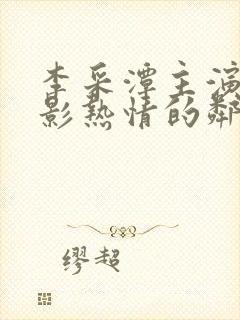 李采潭主演
影热情的邻
缪超